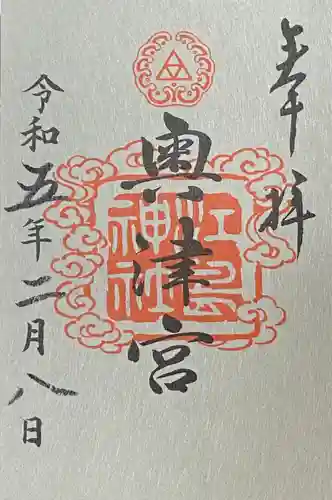 奉拝
奥津宮
江島
神社
令和五年二月八日